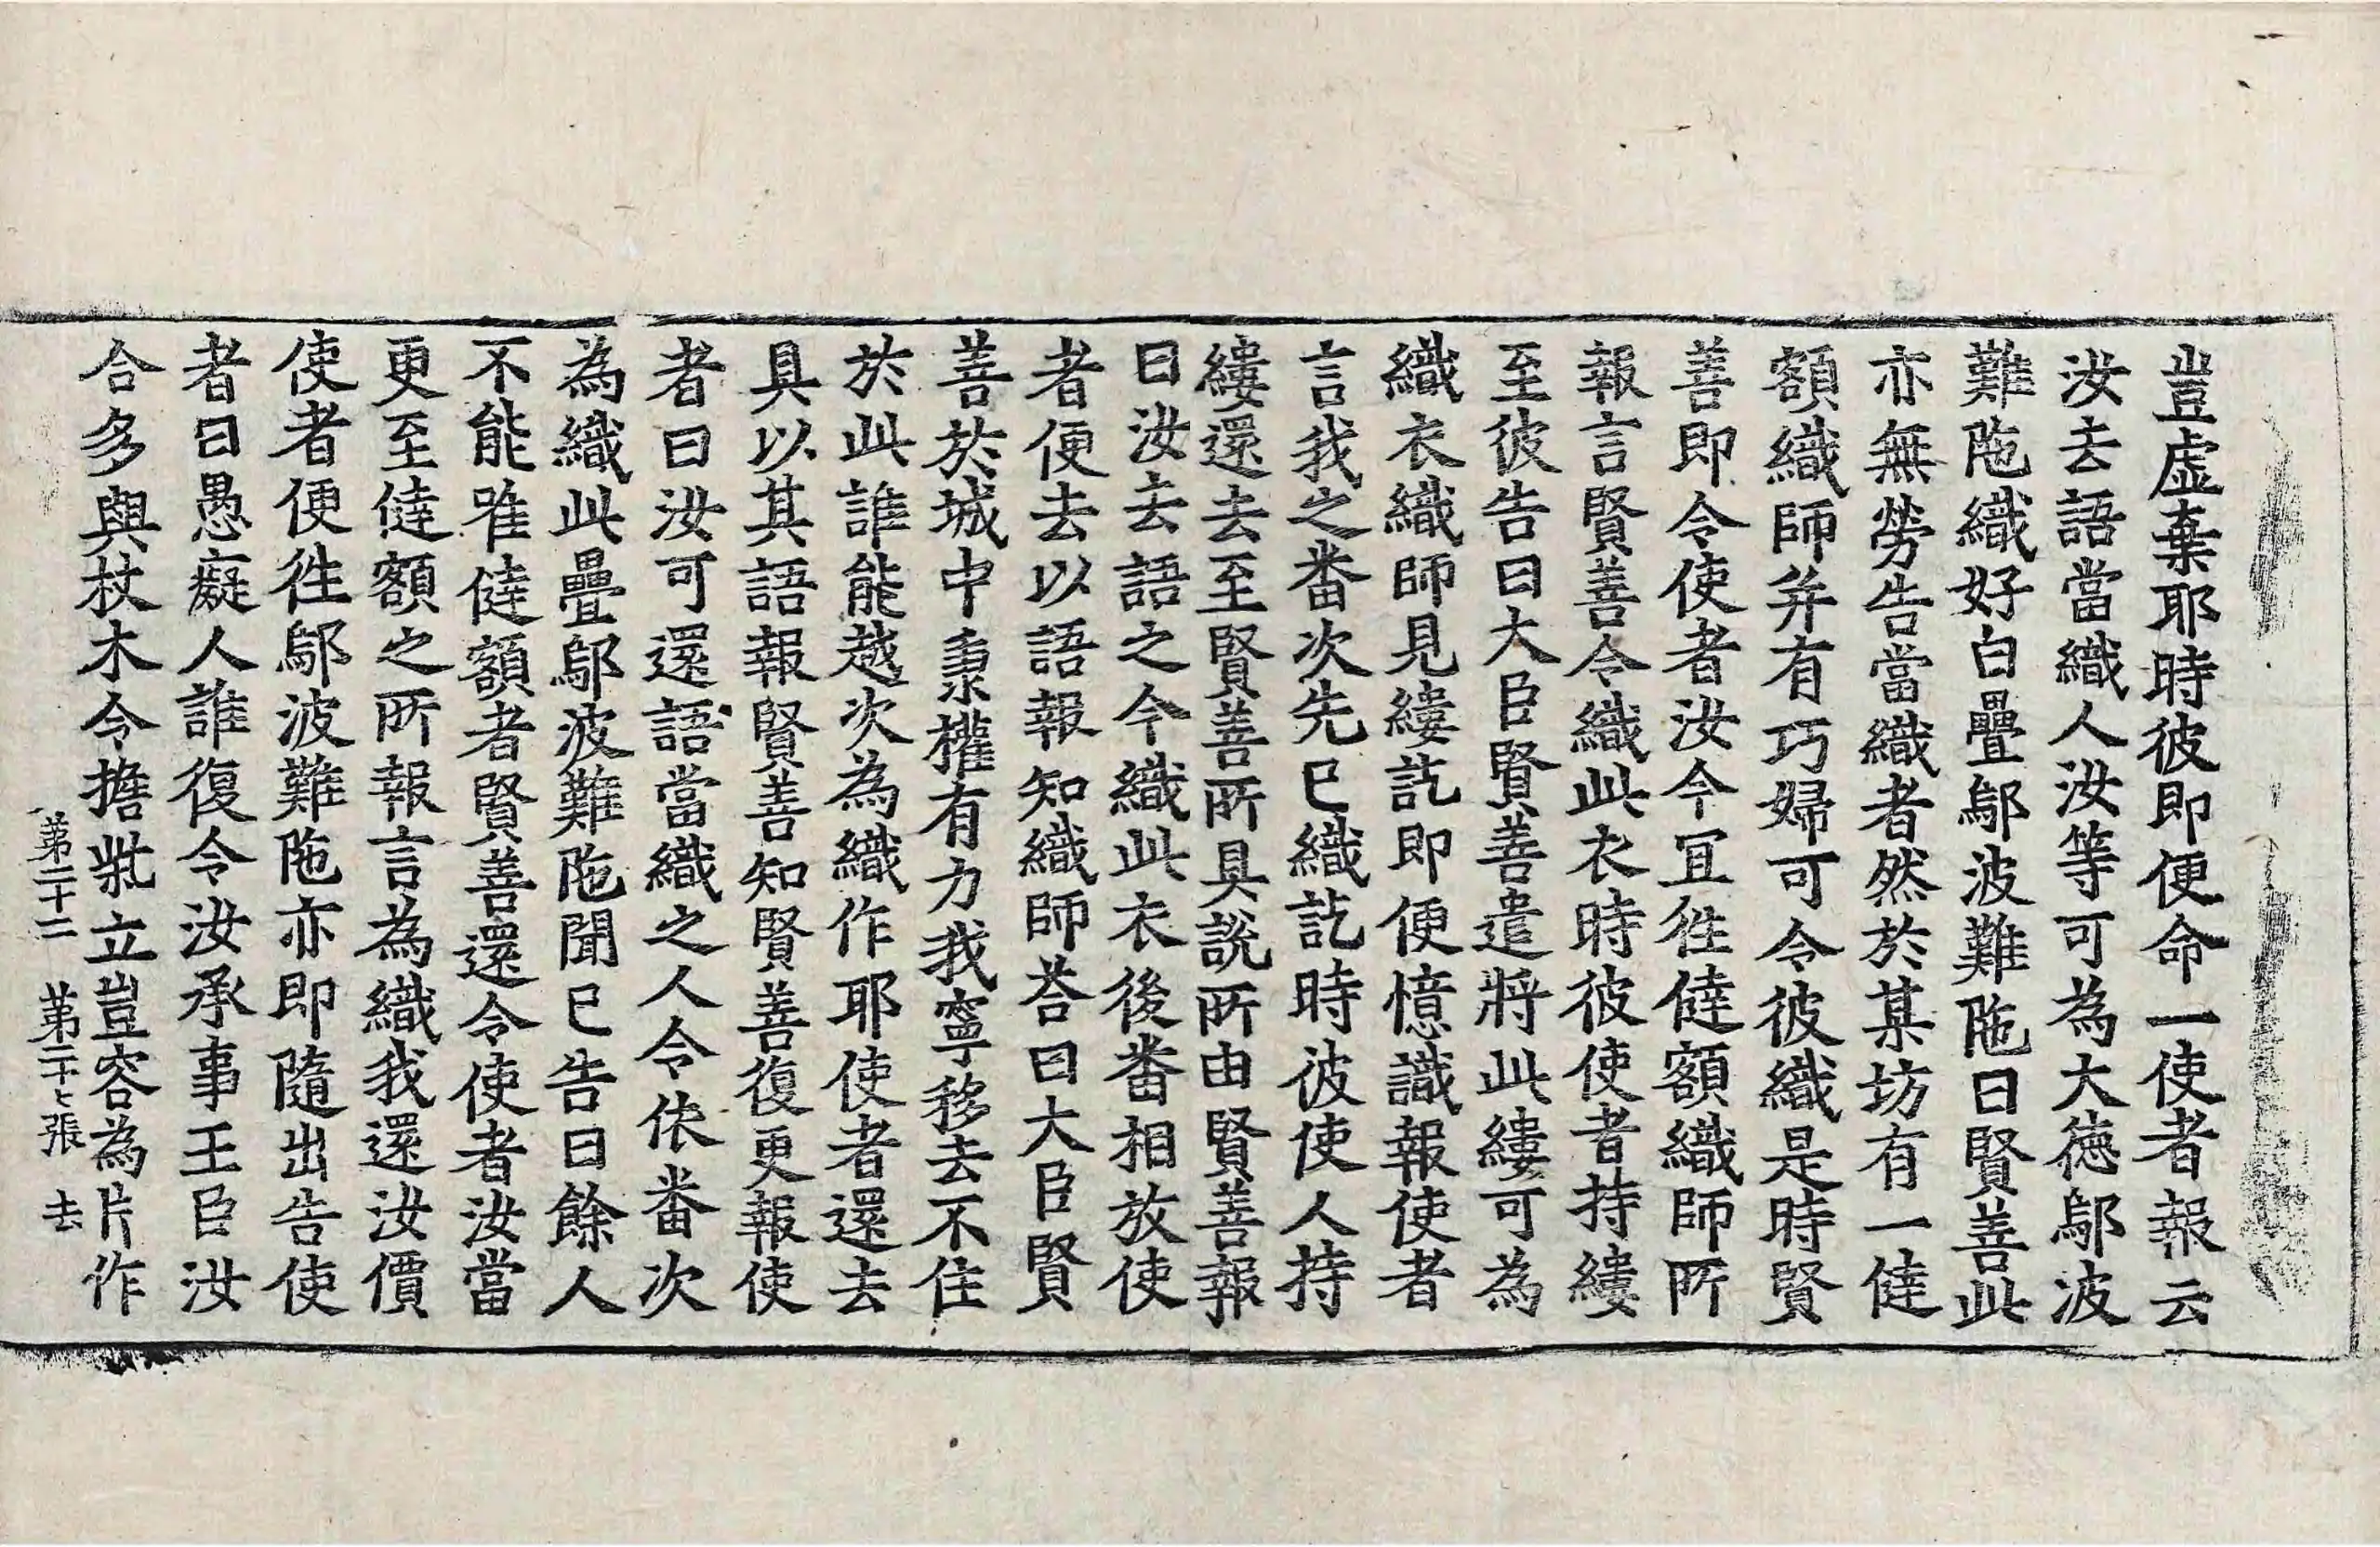 豈虛棄耶時彼即便命一使者報云
汝去語當織人汝等可為大德鄔波
難陁織好白疊鄔波難陁曰賢善此
亦無勞告當織者然於某坊有一㨗
額織師并有巧婦可令彼織是時賢
善即令使者汝今宜徃㨗額織師所
報言賢善令織此衣時彼使者持縷
至彼告曰大臣賢善遣將此縷可為
織衣織師見縷訖即便憶識報使者
言我之番次先已織訖時彼使人持
縷還去至賢善所具說所由賢善報
曰汝去語之今織此衣後番相放使
者便去以語報知織師荅曰大臣賢
善於城中秉權有力我寧移去不住
於此誰能越次為織作耶使者還去
具以其語報賢善知賢善復更報使
者曰汝可還語當織之人令依番次
為織此疊鄔波難陁聞已告曰餘人
不能唯㨗額者賢善還令使者汝當
更至㨗額之所報言為織我還汝價
使者便徃鄔波難陁亦即隨出告使
者曰愚癡人誰復令汝承事王臣汝
合多與杖木令擔牀立豈容為片作
第二十二　第二十七張　去